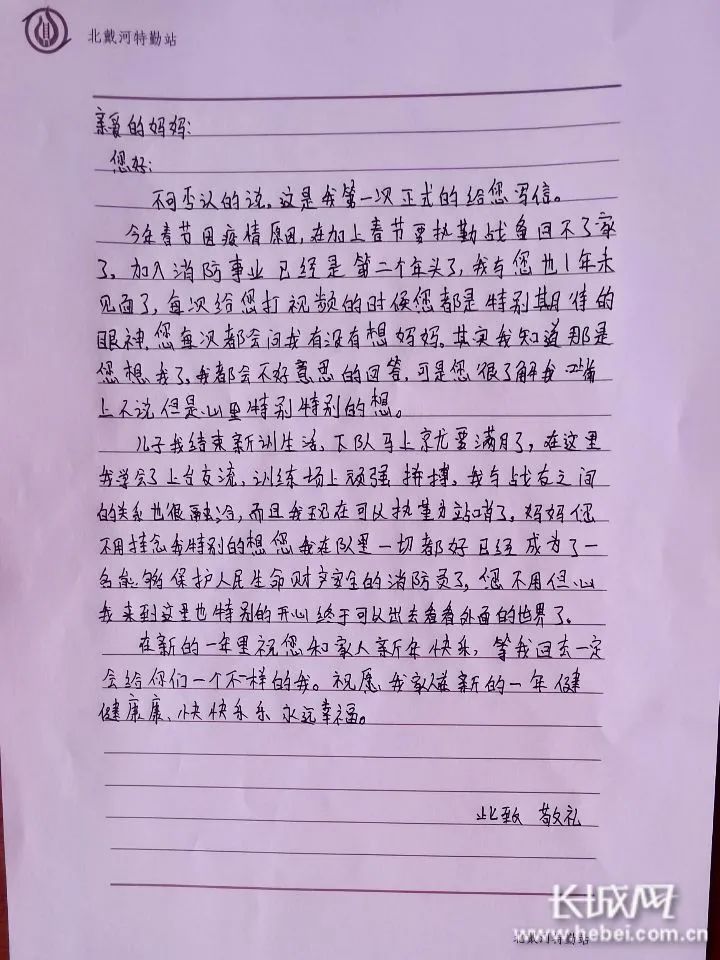 北戴河特勤站
亲爱的妈妈:
您好:
不可否认的说。这是我第一次正式的给您写信。
今年春节因疫情原因,在加上春节要执勤战备回不了家
了。加入消防事业已经是第二个年头了,我与您也1年未
见面了,每次给您打视频的时候您都是特别期待的
眼神,您每次都会问我有没有想妈妈。其实我知道那是
您想我了。我都会不好意思的回答,可是您很了解我嘴
上不说但是心里特别特别的想。
儿子我结束新训生活、下队马上就要满月了,在这里
我学会了上台友流,训练场上顽强拼搏,我与战友之间
的关系也很融洽,而且我现在可以执勤站哨了。妈妈您
不用挂念我特别的想您我在队里一切都好已经成为了一
名能够保护人民生命财产安全的消防员了,您不用但心
我来到这里也特别的开心终于可以出去看看外面的世界了。
在新的一年里祝您和家人新年快乐,等我回去一定
会给你们一个不一样的我。祝愿我家人在新的一年健
健康康、快快乐乐 永远幸福。
此致 敬礼
长城网
www.hebei.com.cn
北戴河特勤站